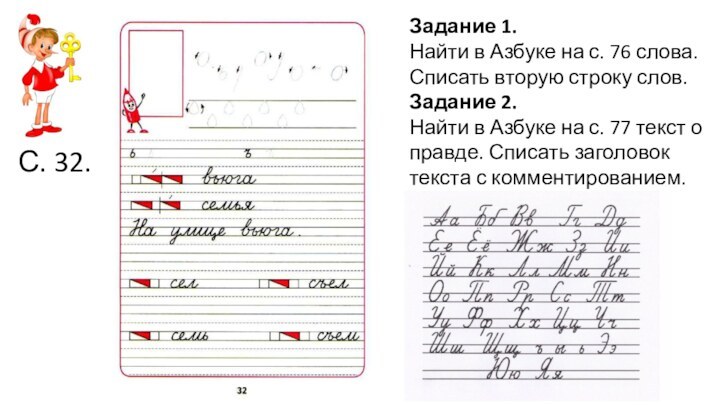 С. 32.
ь ъ
вьюга
семья
На улице вьюга.
сел съел
семь съем
32
Задание 1.
Найти в Азбуке на с. 76 слова.
Списать вторую строку слов.
Задание 2.
Найти в Азбуке на с. 77 текст о
правде. Списать заголовок
текста с комментированием.
Аа Бб Вв Гг Дд
Ее Ёё Жж Зз Ии
Йй Кк Лл Мм Нн
Оо Пп Рр Сс Тт
Уу Фф Хх Цц Чч
Шш Щщ ъ ы ь Ээ
Юю Яя